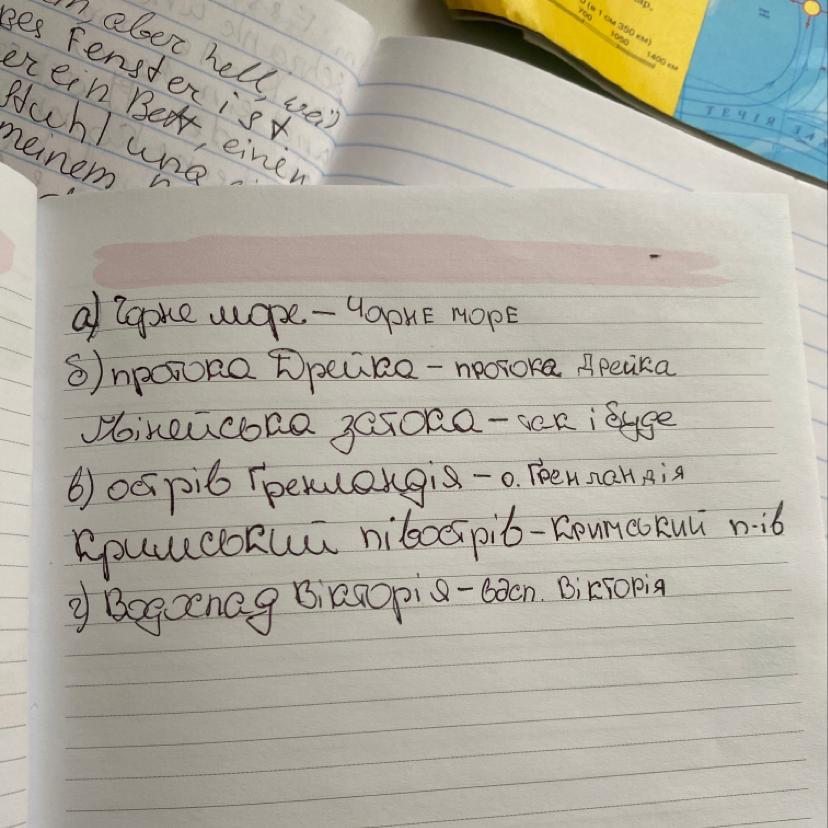 aber hell, weil
Fenster ist
er ein Bett, einen
Stuhl und
meinem
(в 1 см 350 км)
700 1050 1400 км
ТЕЧІЯ
а) Чорне море – Чорне море
б) протока Дрейка – протока Дрейка
Гвінейська затока – так і буде
в) острів Гренландія – о. Гренландія
Кримський півострів – Кримський п-ів
г) Водоспад Вікторія – вдсп. Вікторія